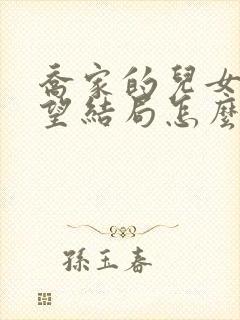 喬家的兒女
望結局怎麼
孫玉春